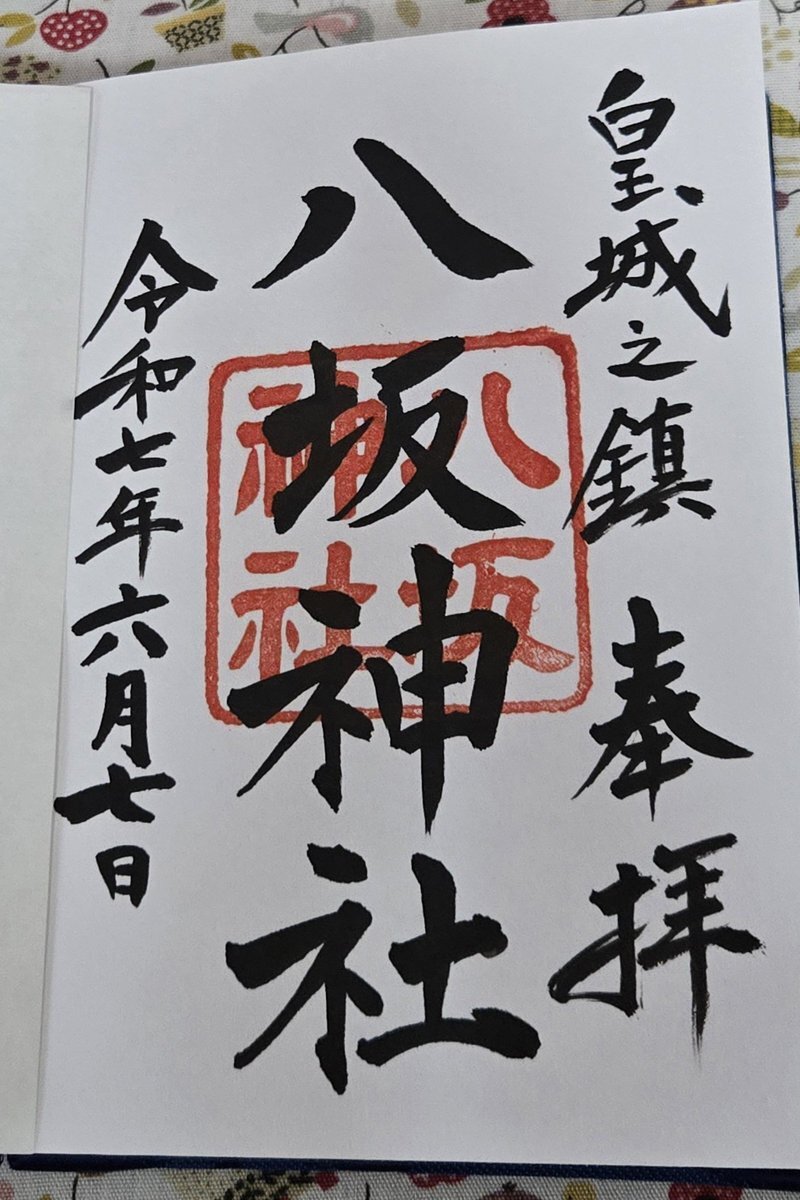 皇城之鎮 奉拝
八坂神社
八坂神社
令和七年六月七日